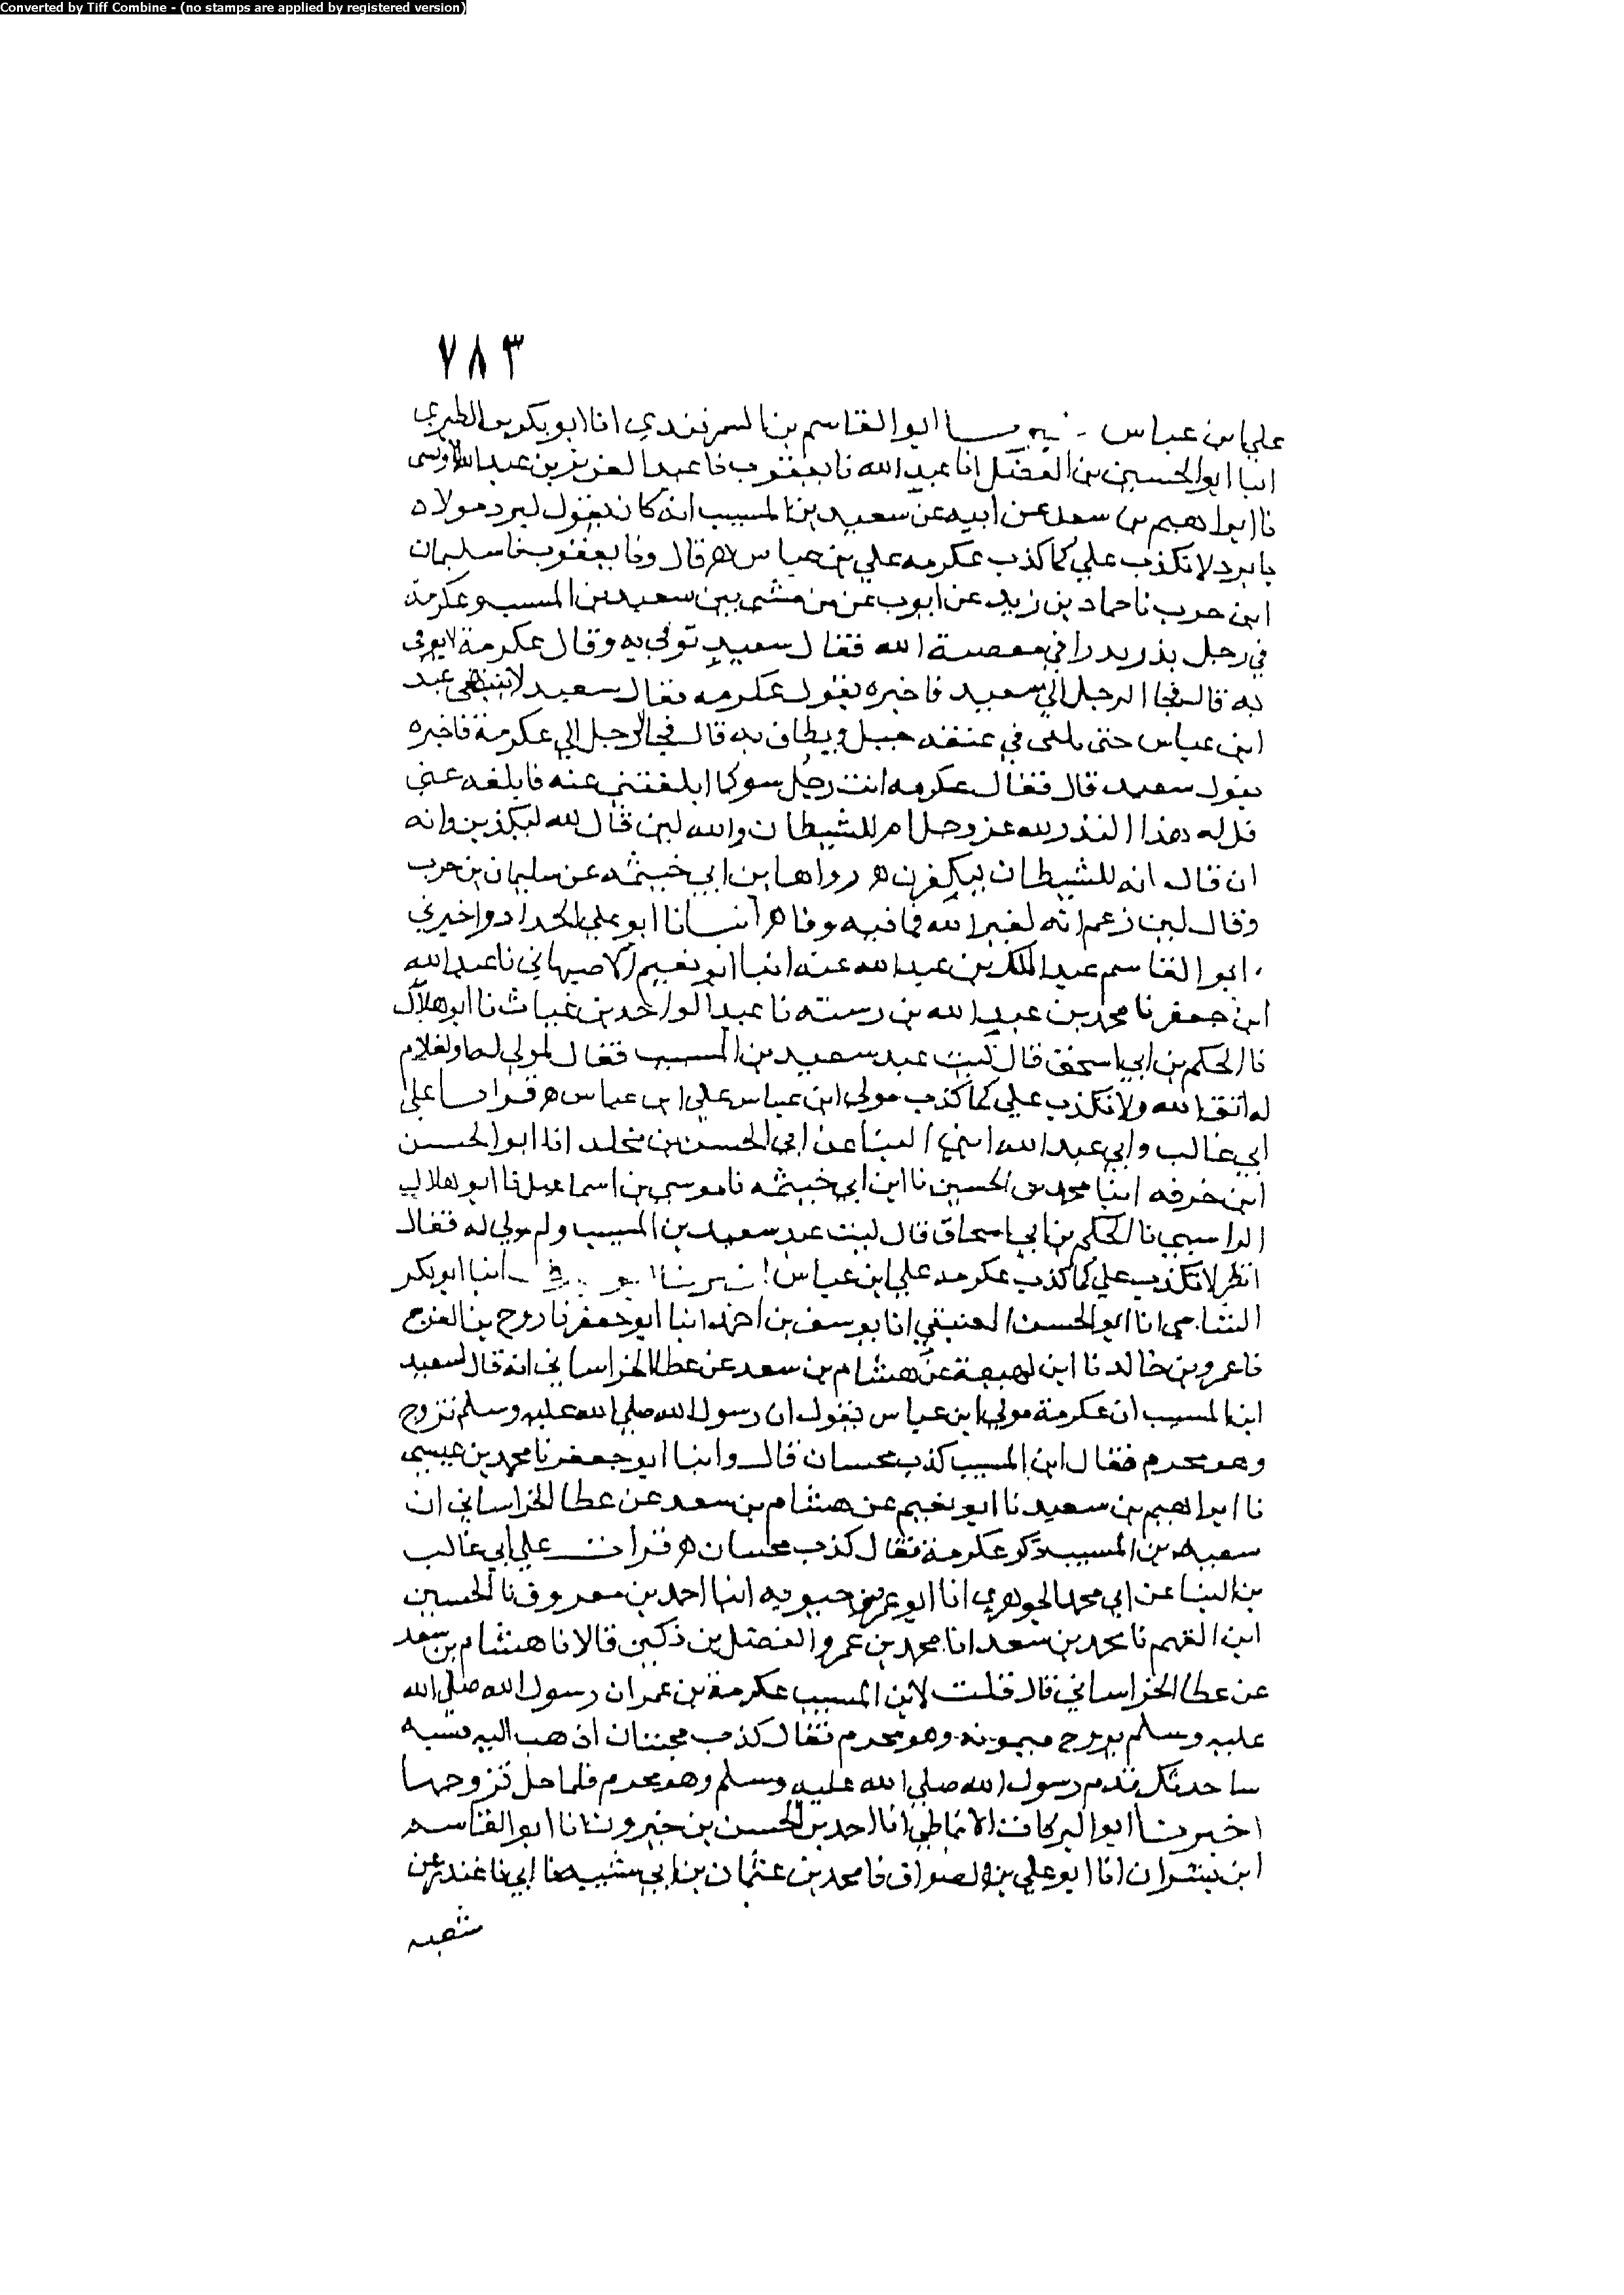 Converted by Tiff Combine - (no stamps are applied by registered version)
٧٨٣
علي ابن عباس ابوالقاسم بن السمرقندي انا ابوبكر بن الطبري
انبا ابوالحسين بن الفضل انا عبد الله نا يعقوب نا عبد العزيز بن عبد الله الاويسى
نا ابراهيم بن سعد عن ابيه عن سعيد بن المسيب انه كان يقول لبرد مولاه
يا برد لا تكذب علي كما كذب عكرمه علي بن عباس ه قال ونا يعقوب نا سليمان
ابن حرب نا حماد بن زيد عن ايوب عن من مشى بين سعيد بن المسيب وعكرمة
في رجل نذر نذرا في معصية الله فقال سعيد توفي به وقال عكرمة لا يوفى
به قال فجا الرجل الي سعيد فاخبره بقول عكرمه فقال سعيد لا ينتهى عبد
ابن عباس حتى يلقى في عنقه حبل ويطاف به قال فجا الرجل الي عكرمة فاخبره
بقول سعيد قال فقال عكرمه انت رجل سو كما ابلغتني عنه فابلغه عني
قل له هذا النذر لله عز وجل ام للشيطان والله لين قال لله ليكذبن وانه
ان قال انه للشيطان ليكفرن ه رواها بن ابي خيثمه عن سليمان بن حرب
وقال لين زعم انه لغير الله فما فيه وفا ه انبانا ابو علي الحداد واخبرني
ابوالقاسم عبد الملك بن عبد الله عنه انبا ابو نعيم الاصبهاني نا عبد الله
ابن جعفر نا محمد بن عبد الله بن رسته نا عبد الواحد بن غياث نا ابو هلال
نا الحكم بن ابي اسحق قال كنت عند سعيد بن المسيب فقال لمولي له او لغلام
له اتق الله ولا تكذب علي كما كذب مولى ابن عباس علي ابن عباس ه قرانا على
ابي غالب وابي عبد الله ابني البنا عن ابي الحسن بن مخلد انا ابو الحسن
ابن خزفه انبا محمد بن الحسين نا ابن ابي خيثمه نا موسي بن اسماعيل نا ابو هلال
الراسبي نا الحكم بن ابي اسحاق قال كنت عند سعيد بن المسيب وثم مولي له فقال
انظر لا تكذب علي كما كذب عكرمه علي ابن عباس انبا ابو بكر
الشامي انا ابو الحسن العتيقي انا يوسف بن احمد انبا ابو جعفر نا روح بن الفرج
نا عمرو بن خالد نا ابن لهيعة عن هشام بن سعد عن عطا الخراساني انه قال لسعيد
ابن المسيب ان عكرمة مولي ابن عباس يقول ان رسول الله صلي الله عليه وسلم تزوج
وهو محرم فقال ابن المسيب كذب محسان قال وانبا ابو جعفر نا محمد بن عيسي
نا ابراهيم بن سعيد نا ابو نعيم عن هشام بن سعد عن عطا الخراساني ان
سعيد بن المسيب ذكر عكرمة فقال كذب محسان ه قرات علي ابي غالب
بن البنا عن ابي محمد الجوهري انا ابو عمر بن حيويه انبا احمد بن معروف نا الحسين
ابن الفهم نا محمد بن سعد انا محمد بن عمر والفضل بن دكين قالا نا هشام بن سعد
عن عطا الخراساني قال قلت لابن المسيب عكرمة بن عم ان رسول الله صلي الله
عليه وسلم تزوج ميمونه وهو محرم فقال كذب مخبثان اذهب اليه فسبه
ساحدثك قدم رسول الله صلي الله عليه وسلم وهو محرم فلما حل تزوجها
اخبرنا ابو البركات الانماطي انا احمد بن الحسن بن خيرون انا ابو القاسم
ابن بشران انا ابو علي بن الصواف نا محمد بن عثمان بن ابي شيبه نا ابي نا غندر عن
شعبه